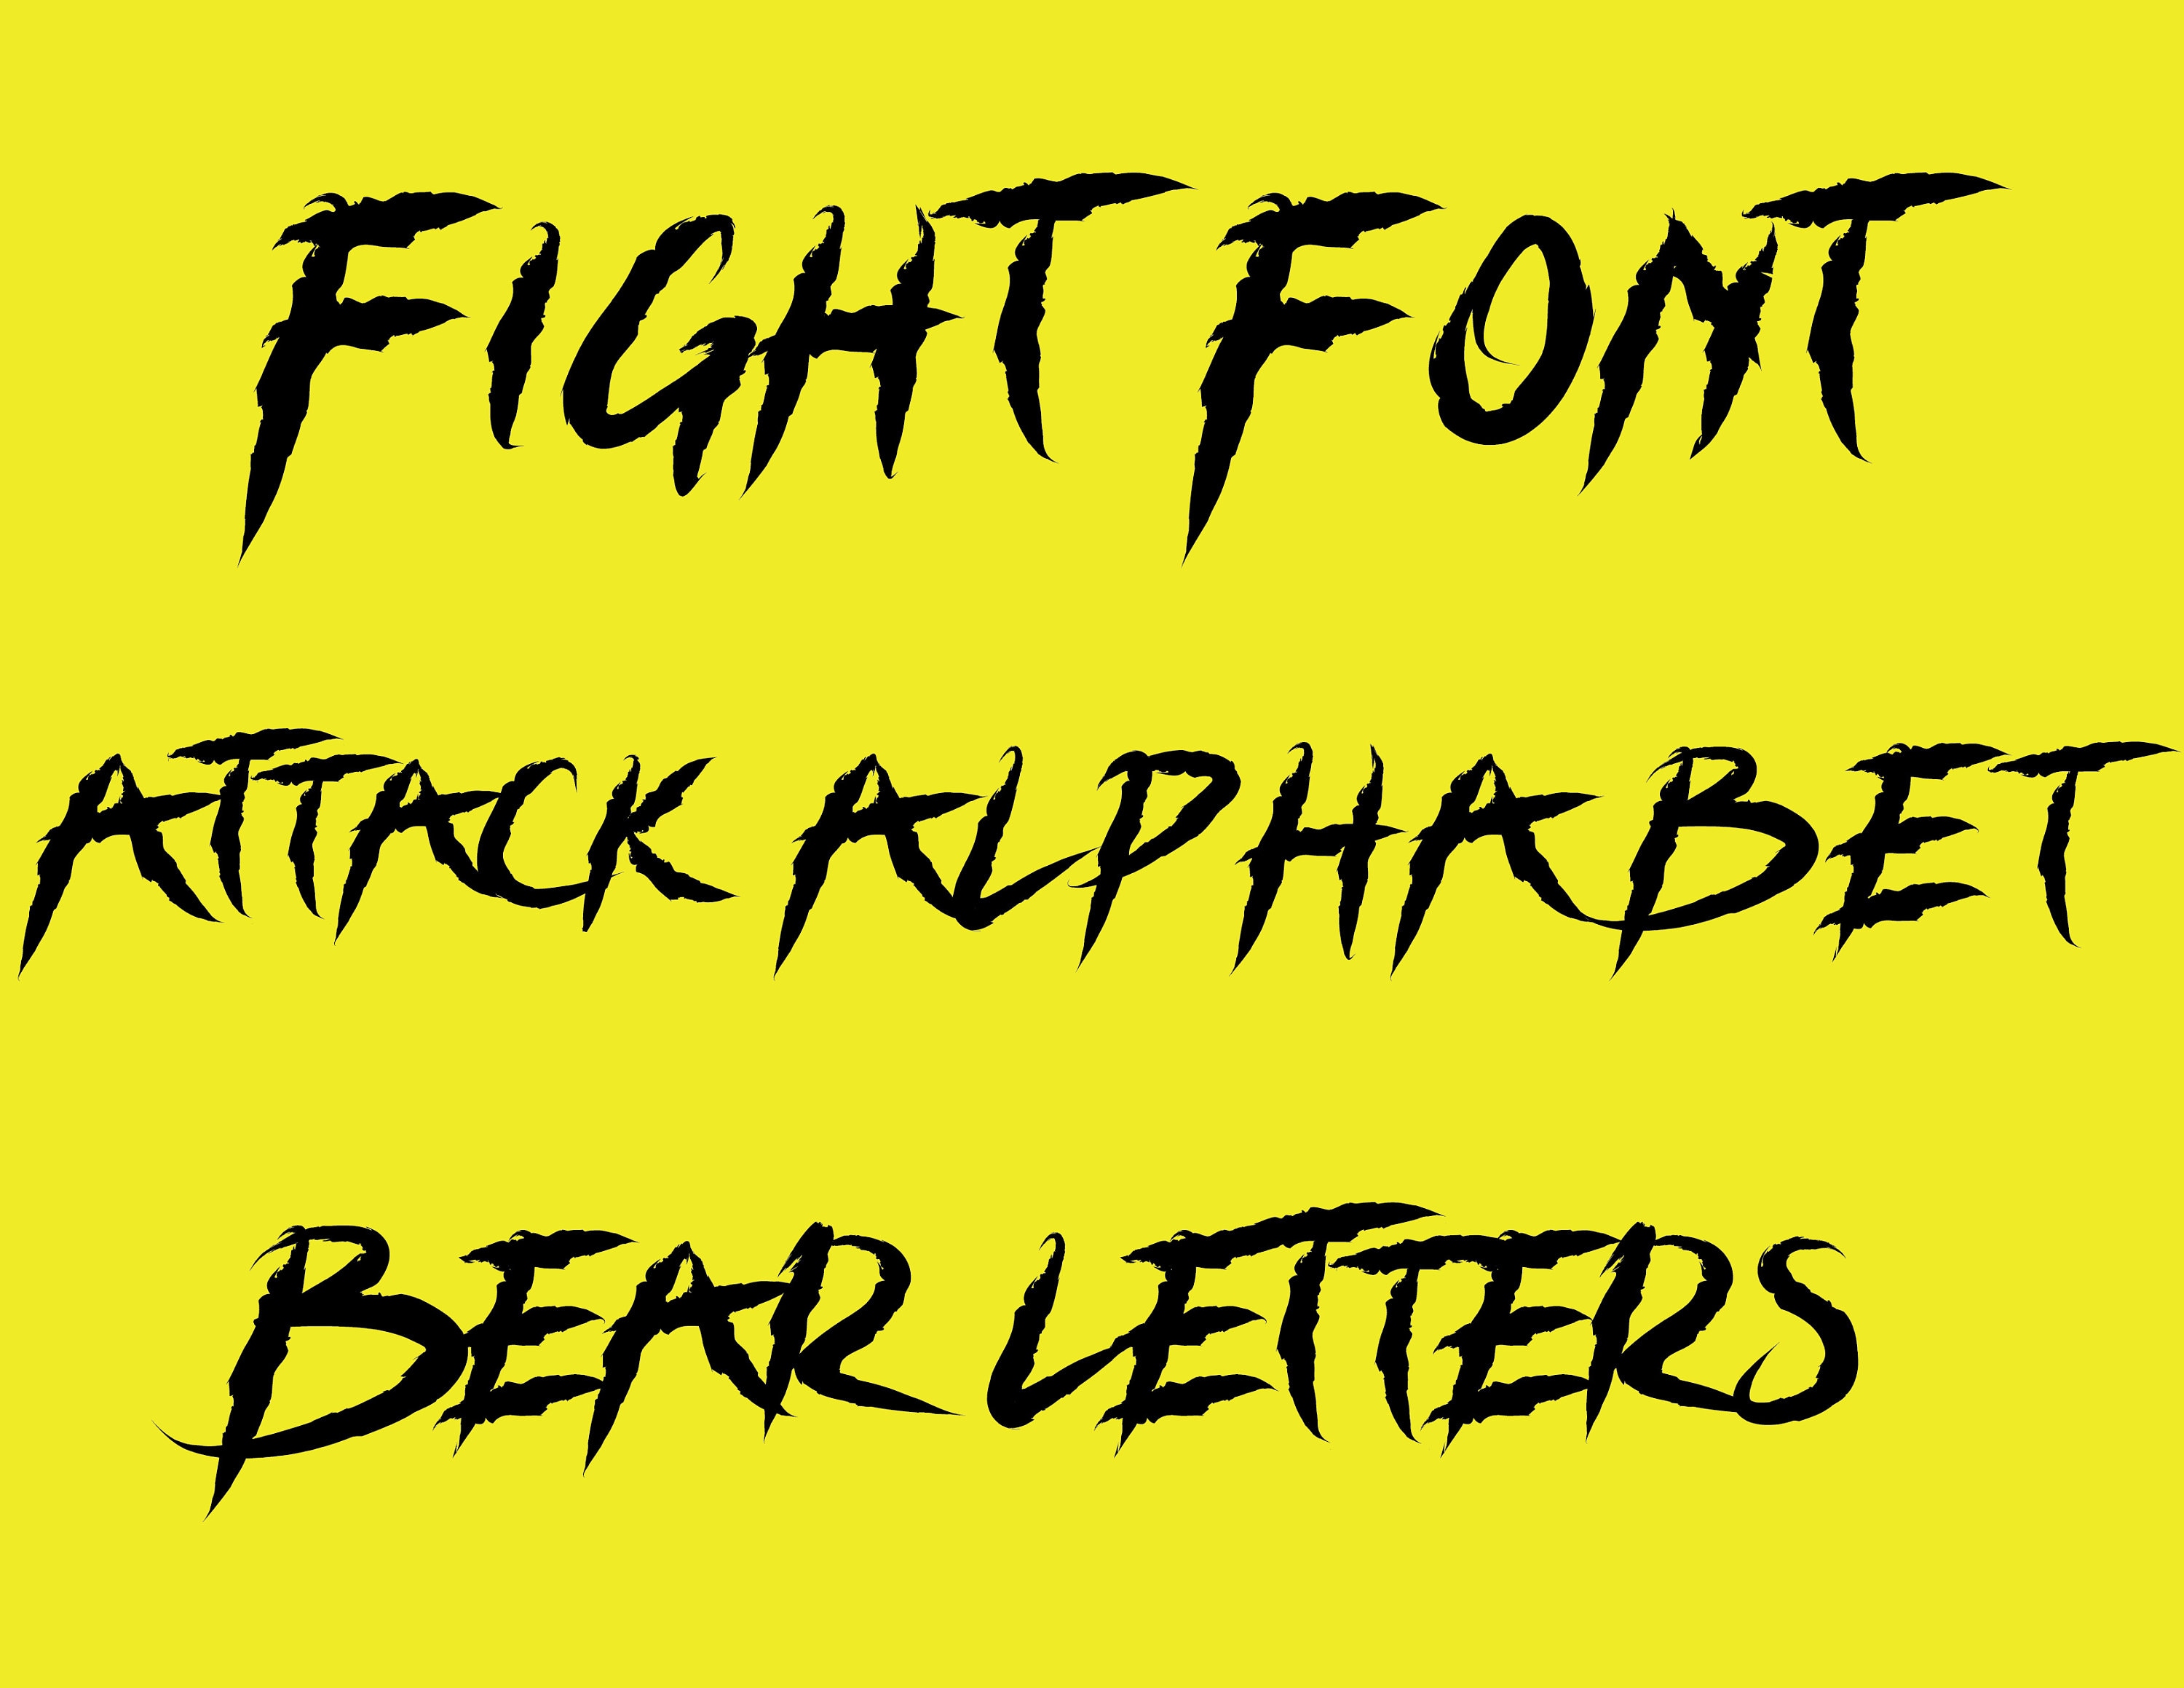 FIGHT FONT
ATTACK ALPHABET
BEAR LETTERS